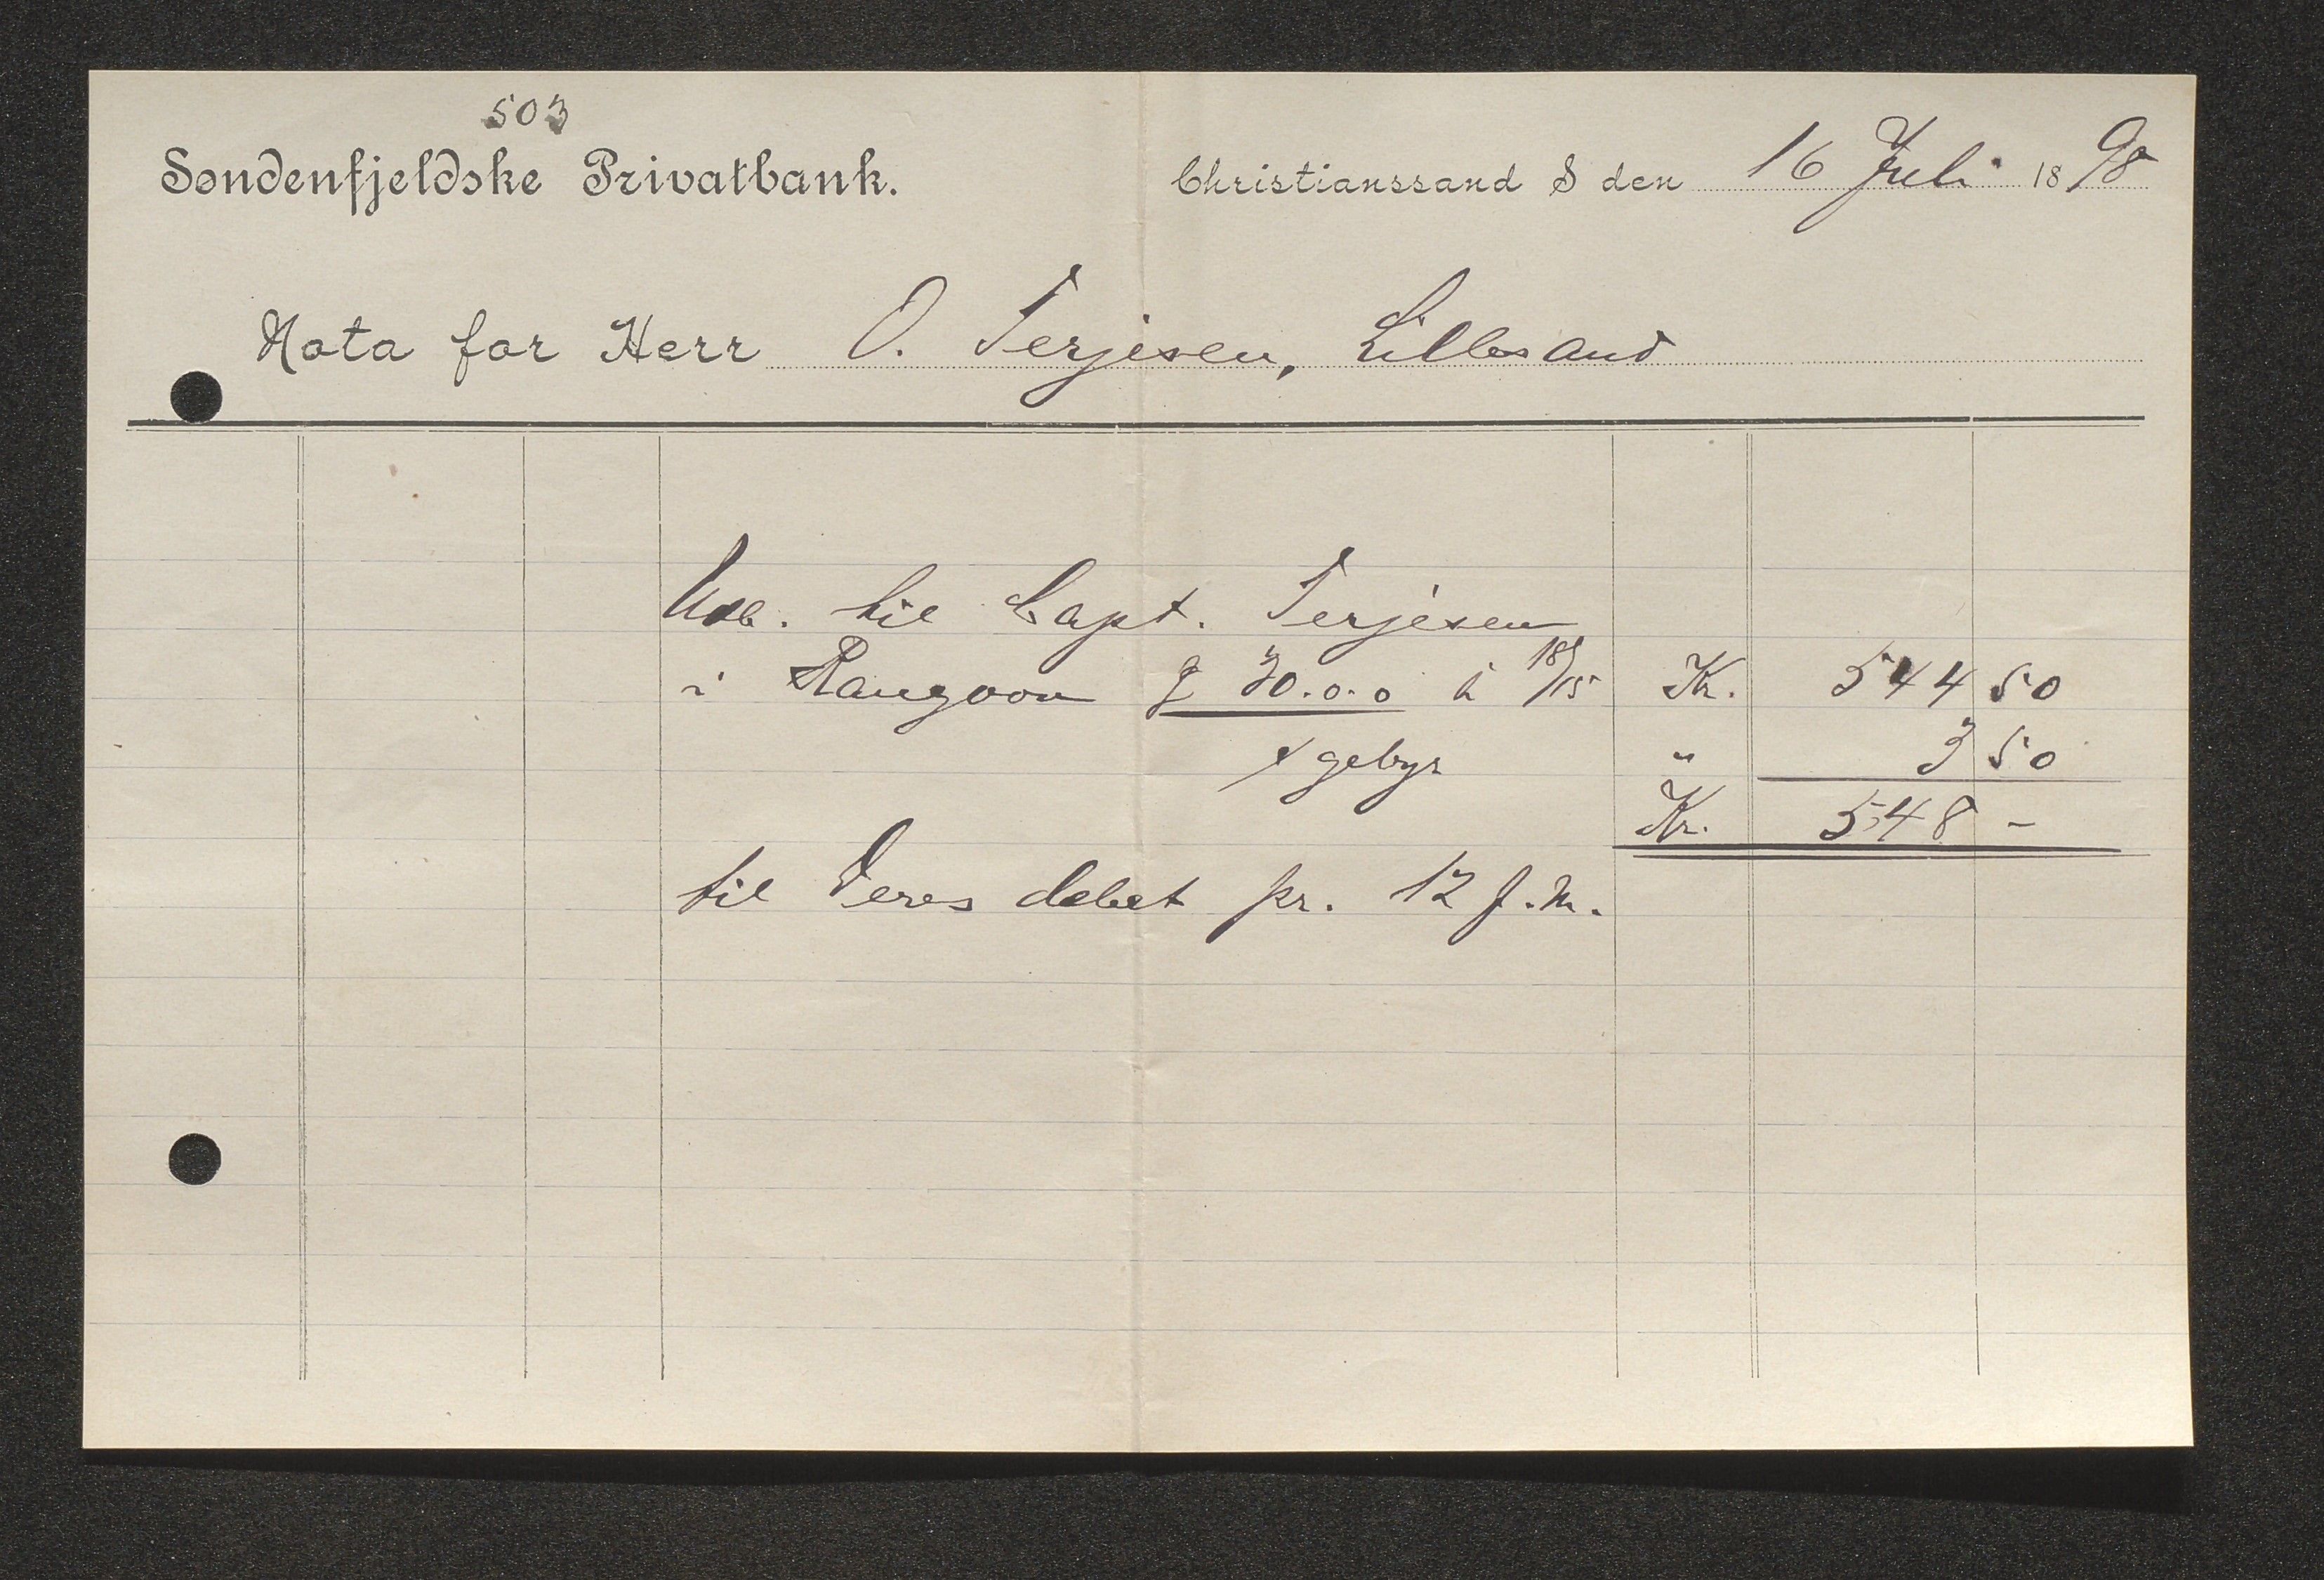 503
Søndenfjeldske Privatbank. Christianssand S den 16 Juli 1898
Nota for Herr O. Terjesen, Lillesand
Udb. til Capt. Terjesen
i Rangoon £ 30.0.0 à 18/15 Kr. 544 50
gebyr " 3 50
Kr. 548 -
til Deres debet pr. 12 f.m.